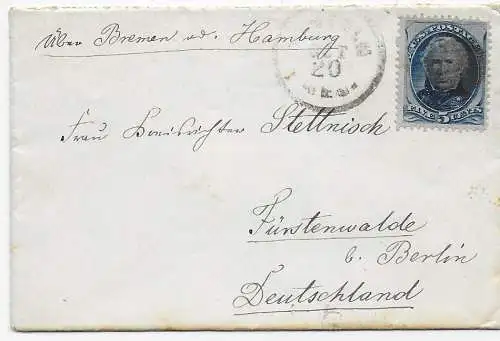 Über Bremen od. Hamburg
20
Frau Kreisrichter Stettnisch
Fürstenwalde
b. Berlin
Deutschland
U.S. POSTAGE
FIVE 5 CENTS